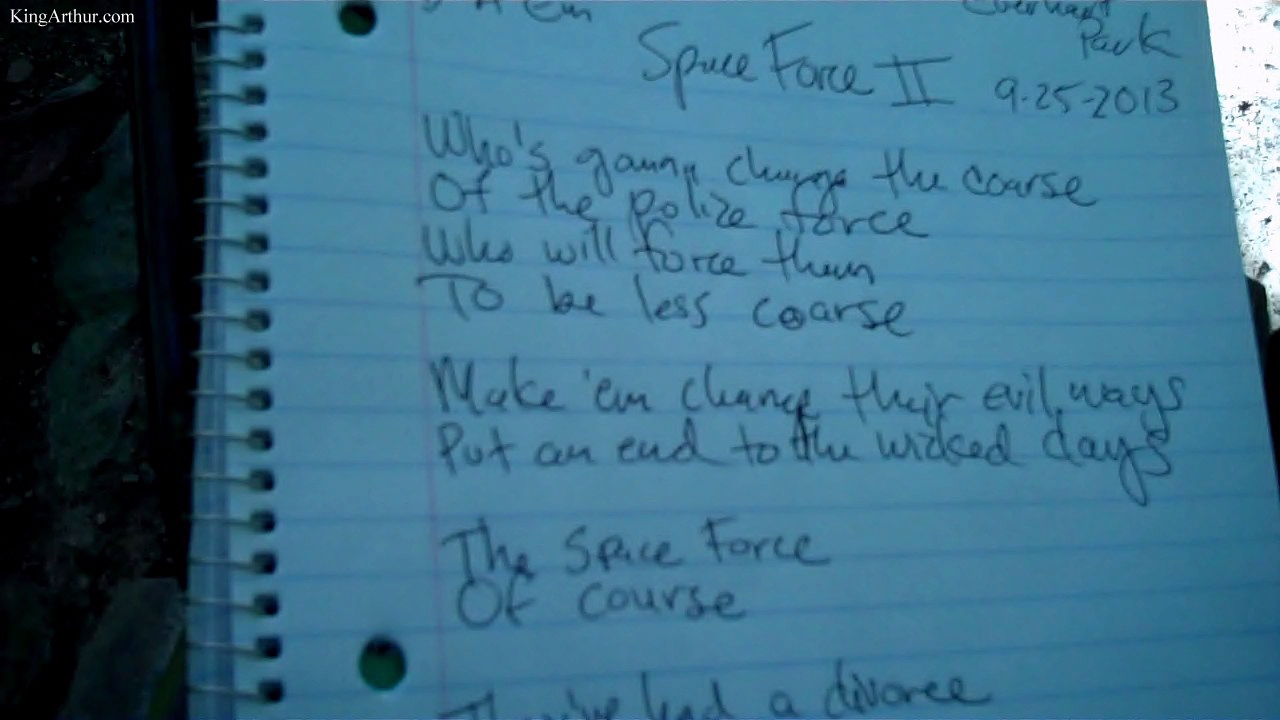 KingArthur.com
Em
Eberhart
Park
Space Force II 9-25-2013
Who's gauna change the coarse
Of the polize force
Who will force them
To be less coarse
Make 'em change their evil ways
Put an end to the wicked days
The Space Force
Of course
They've had a divorce